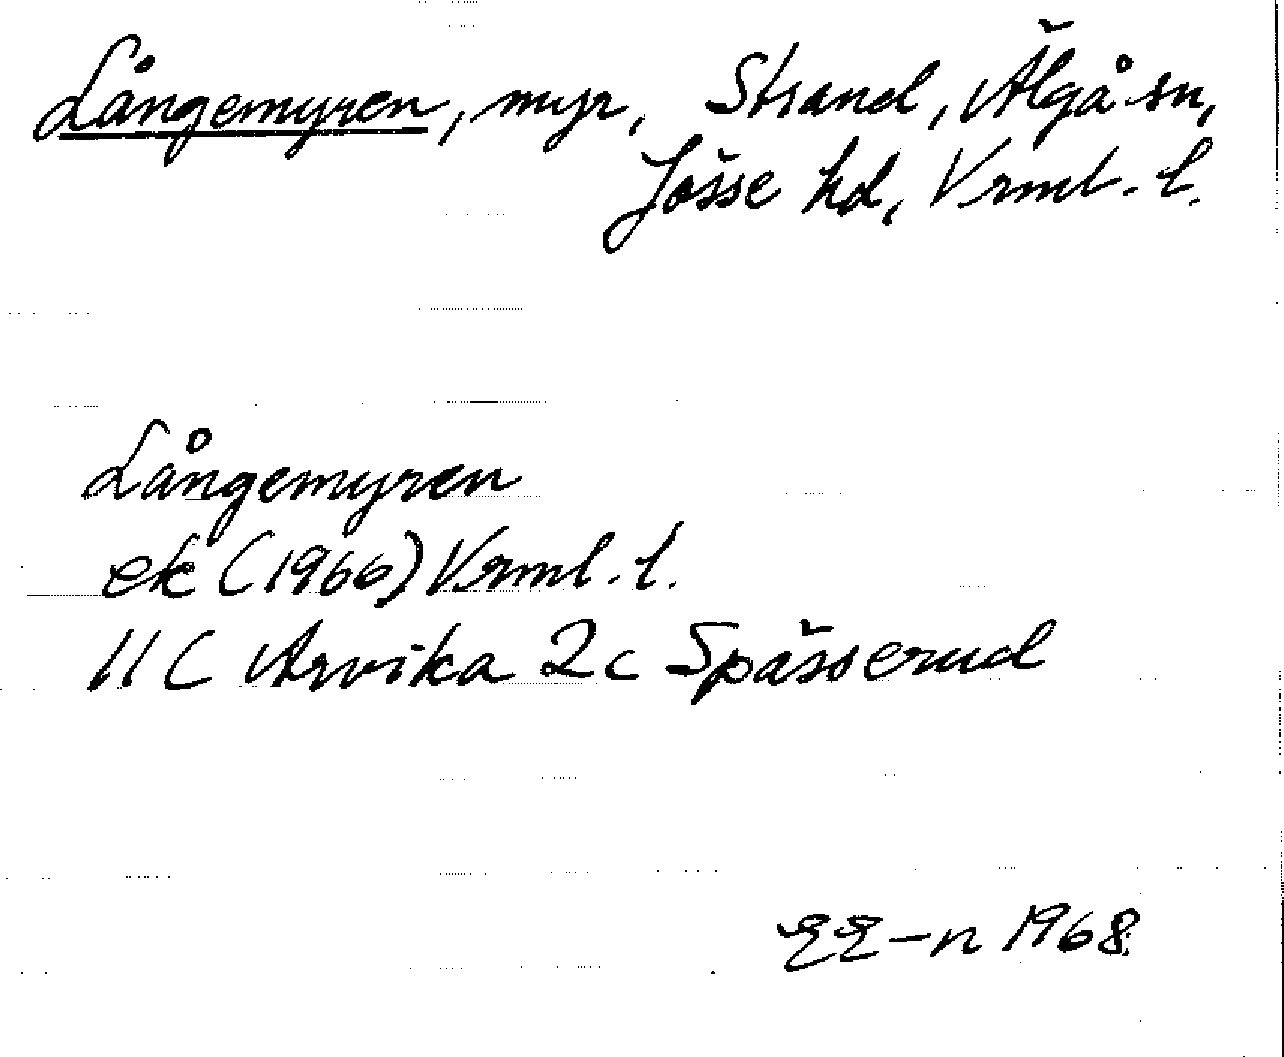 Långemyren, myr, Strand, Älgå sn,
Jösse hd, Vrml. l.
Långemyren
ek (1966) Vrml. l.
11 C Arvika 2c Spässerud
EE-n 1968